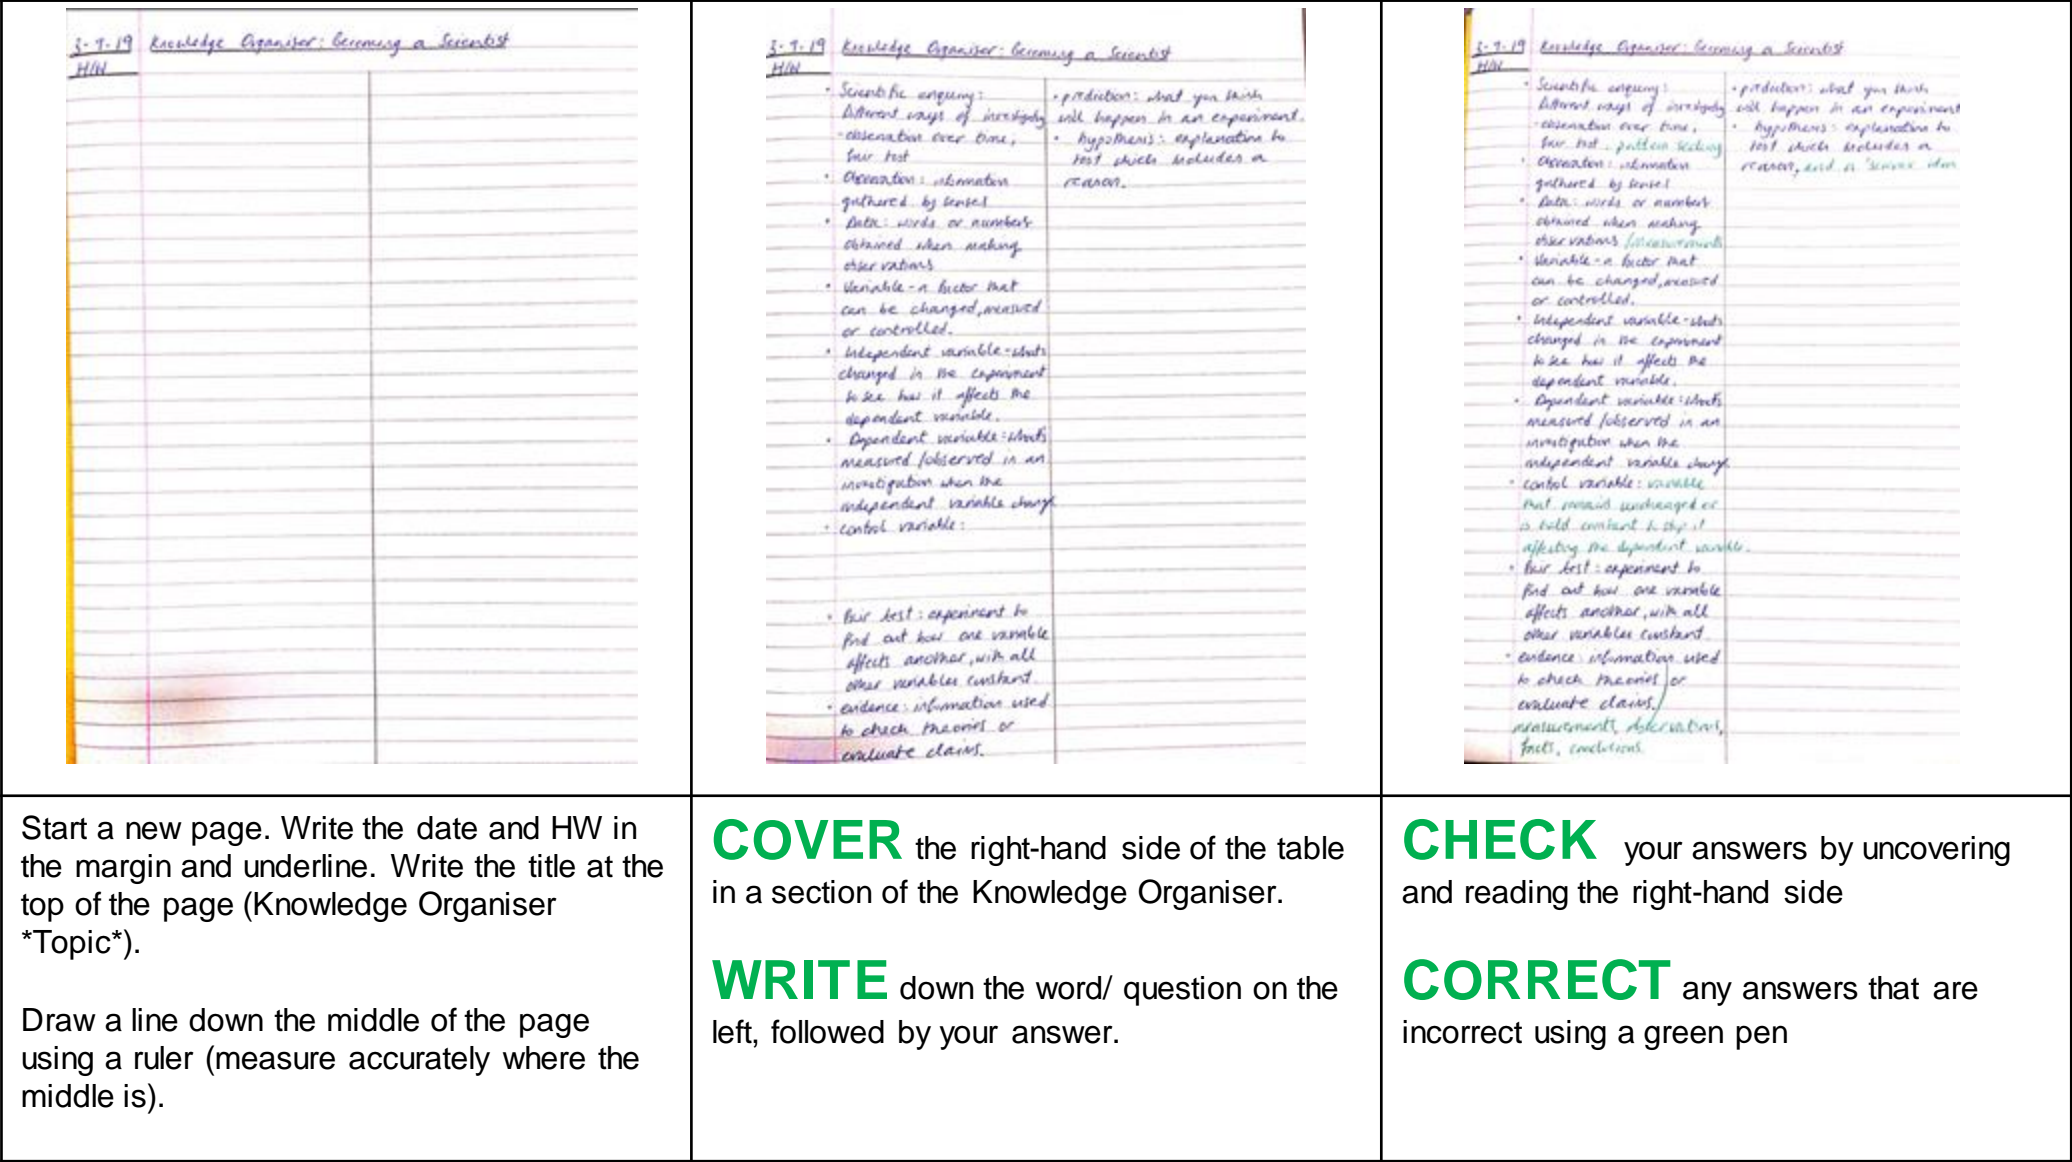 3-9-19 Knowledge Organiser: Becoming a Scientist
H/W
3-9-19 Knowledge Organiser: Becoming a Scientist
H/W
• Scientific enquiry:
Different ways of investigating
-observation over time,
fair test
• Observation: information
gathered by senses
• Data: words or numbers
obtained when making
observations
• Variable - a factor that
can be changed, measured
or controlled.
• Independent variable - whats
changed in the experiment
to see how it affects the
dependent variable.
• Dependent variable: whats
measured /observed in an
investigation when the
independent variable change
• control variable:
• Fair test: experiment to
find out how one variable
affects another, with all
other variables constant.
• evidence: information used
to check theories or
evaluate claims.
• prediction: what you think
will happen in an experiment.
• hypothesis: explanation to
test which includes a
reason.
3-9-19 Knowledge Organiser: Becoming a Scientist
H/W
• Scientific enquiry:
Different ways of investigating
-observation over time,
fair test, pattern seeking
• Observation: information
gathered by senses
• Data: words or numbers
obtained when making
observations /measurements
• Variable - a factor that
can be changed, measured
or controlled.
• Independent variable - whats
changed in the experiment
to see how it affects the
dependent variable.
• Dependent variable: whats
measured /observed in an
investigation when the
independent variable change
• control variable: variable
that remains unchanged or
is held constant to stop it
affecting the dependent variable.
• Fair test: experiment to
find out how one variable
affects another, with all
other variables constant.
• evidence: information used
to check theories or
evaluate claims.
measurements, observations,
facts, conclusions.
• prediction: what you think
will happen in an experiment
• hypothesis: explanation to
test which includes a
reason, and a 'science idea
Start a new page. Write the date and HW in
the margin and underline. Write the title at the
top of the page (Knowledge Organiser
*Topic*).
Draw a line down the middle of the page
using a ruler (measure accurately where the
middle is).
COVER the right-hand side of the table
in a section of the Knowledge Organiser.
WRITE down the word/ question on the
left, followed by your answer.
CHECK your answers by uncovering
and reading the right-hand side
CORRECT any answers that are
incorrect using a green pen